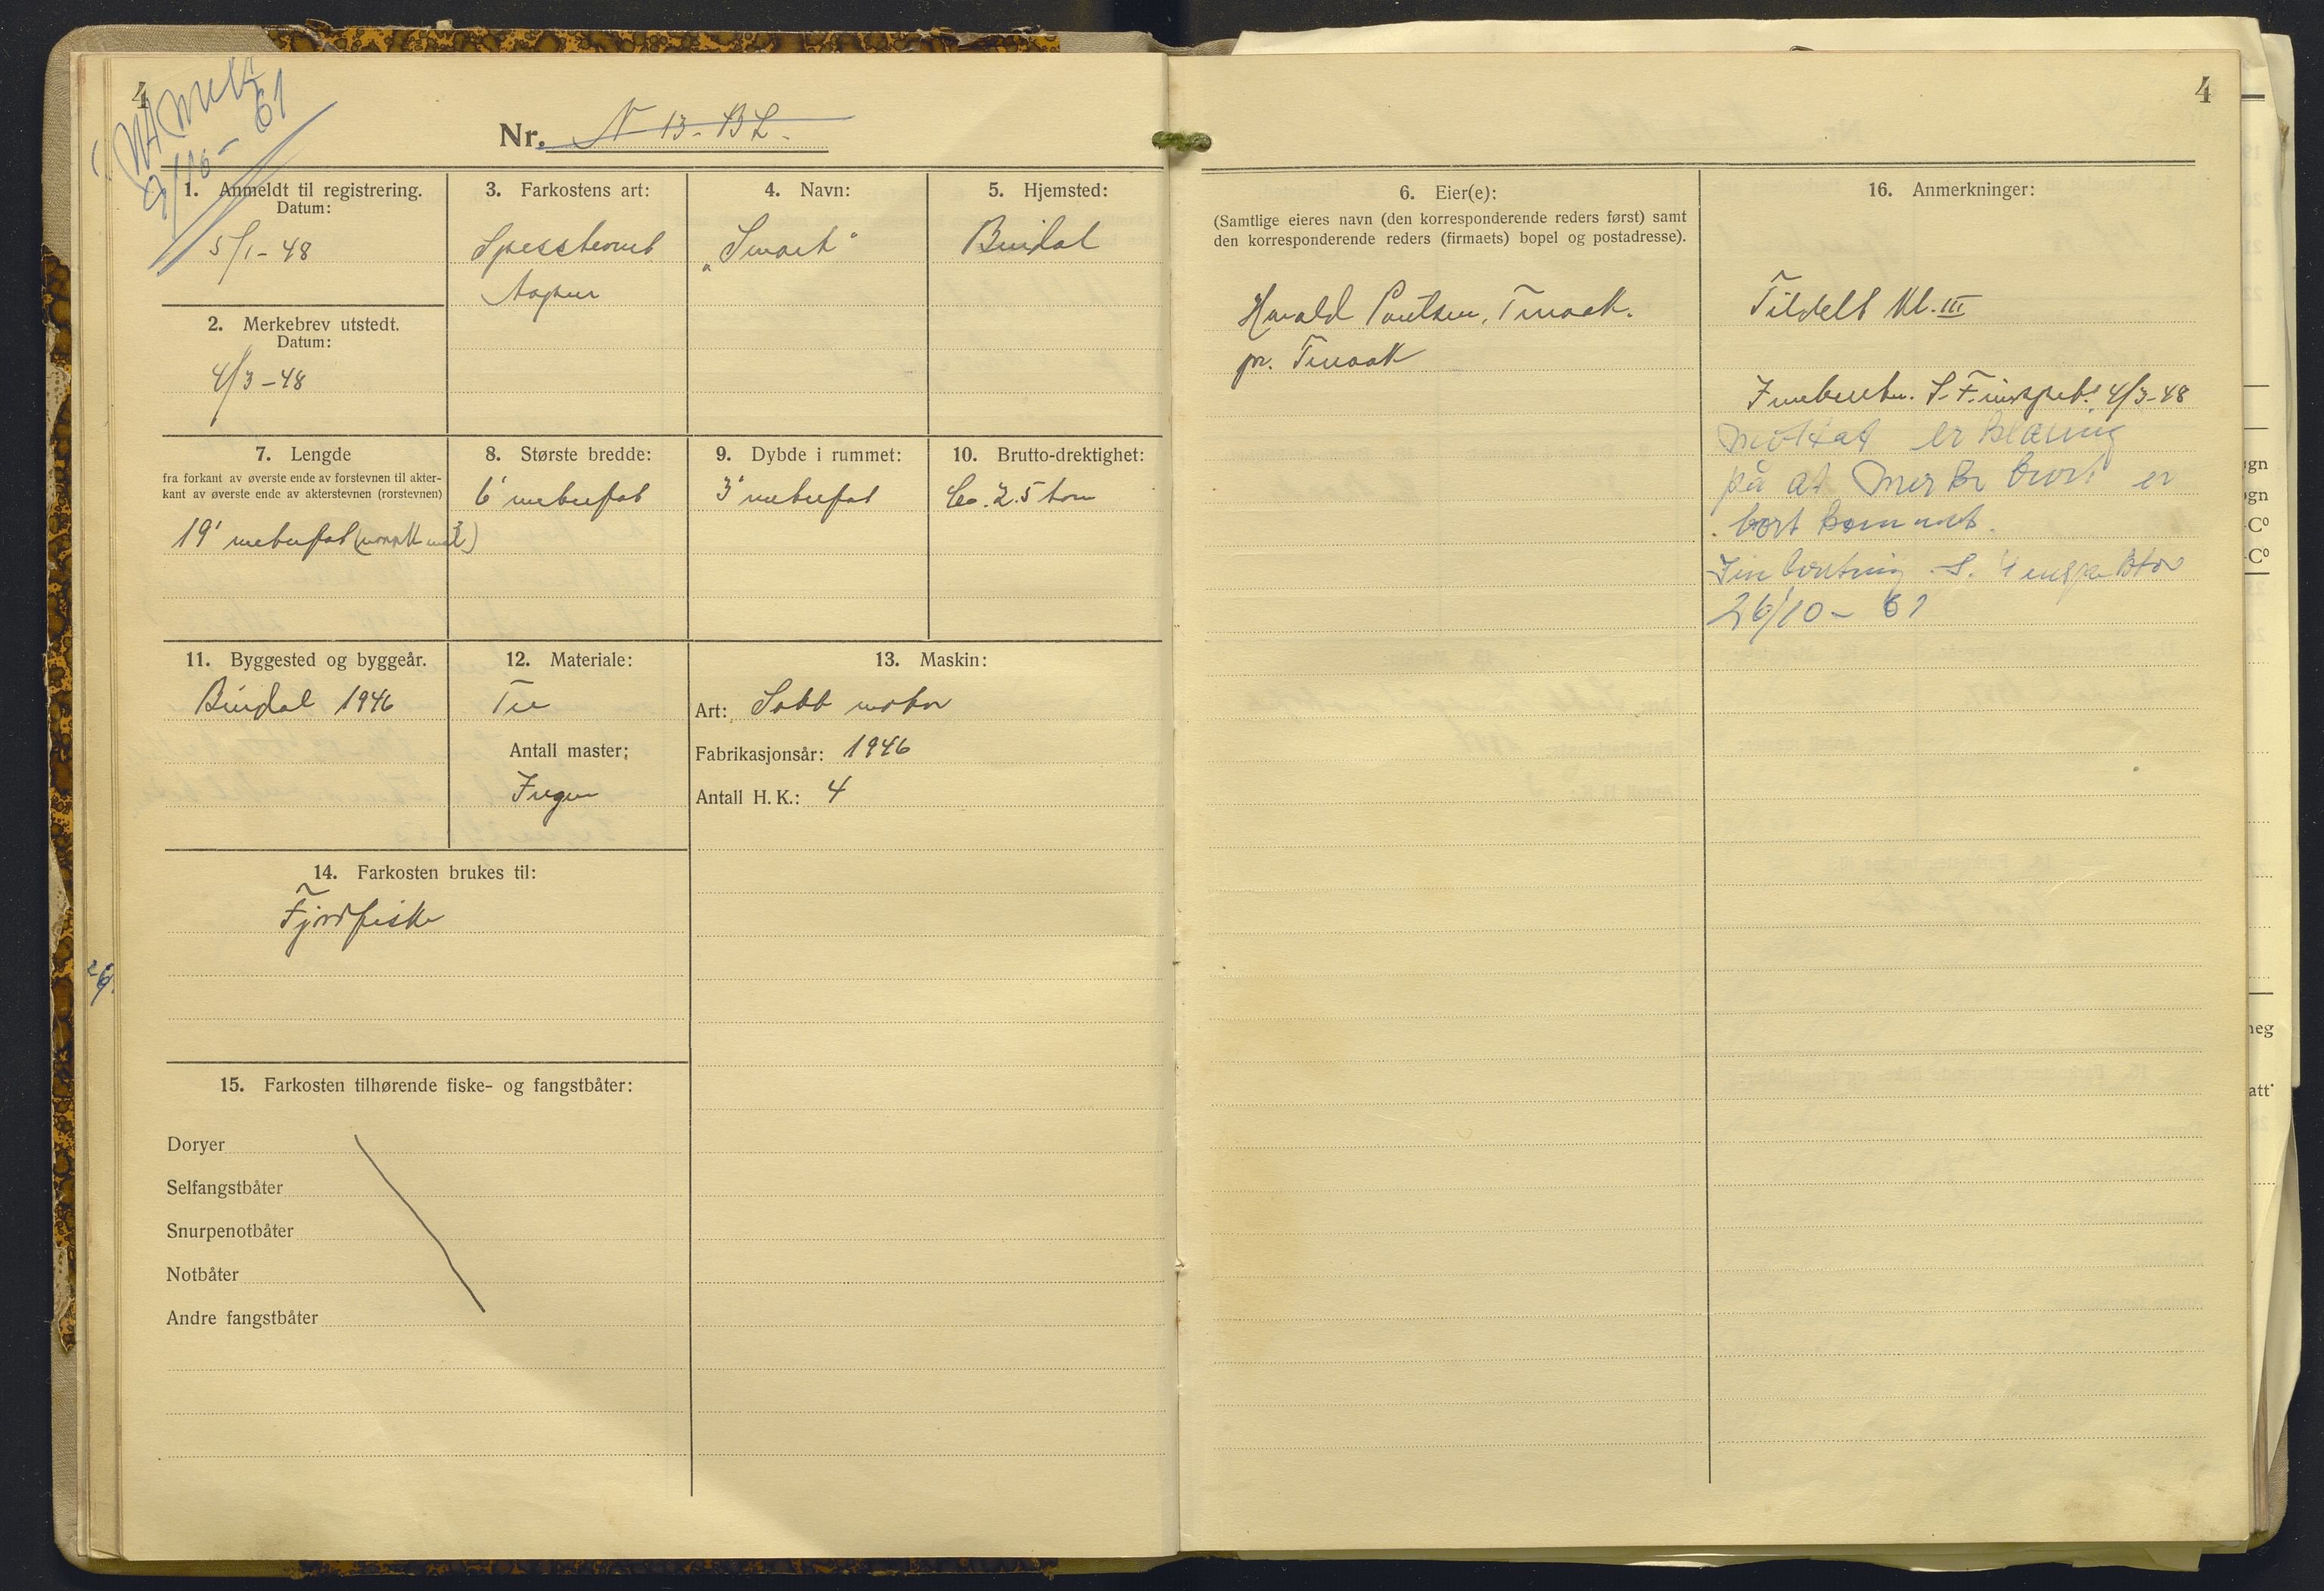 4
Utmeldt
9/10-61
Nr. N-13-BL.
1. Anmeldt til registrering.
Datum:
5/1-48
2. Merkebrev utstedt.
Datum:
4/3-48
3. Farkostens art:
Spesstevnet
4. Navn:
"Smart"
5. Hjemsted:
Bindal
7. Lengde
fra forkant av øverste ende av forstevnen til akter-
kant av øverste ende av akterstevnen (rorstevnen)
19'
8. Største bredde:
6'
9. Dybde i rummet:
3'
10. Brutto-drektighet:
Ca. 2.5 tonn
11. Byggested og byggeår.
Bindal 1946
12. Materiale:
Tre
Antall master:
Ingen
13. Maskin:
Art: Sabb motor
Fabrikasjonsår: 1946
Antall H. K.: 4
14. Farkosten brukes til:
Fjordfiske
26/
15. Farkosten tilhørende fiske- og fangstbåter:
Doryer
Selfangstbåter
Snurpenotbåter
Notbåter
Andre fangstbåter
4
6. Eier(e):
(Samtlige eieres navn (den korresponderende reders først) samt
den korresponderende reders (firmaets) bopel og postadresse).
Harald Poulsen, Terråk.
pr. Terråk
16. Anmerkninger:
Tildelt Kl. III
Innberetn. S. F. inspekt. 4/3-48
Mottat erklæring
på at Merkebrev er
bort kommet.
Innberetning S. F inspektør
26/10-61